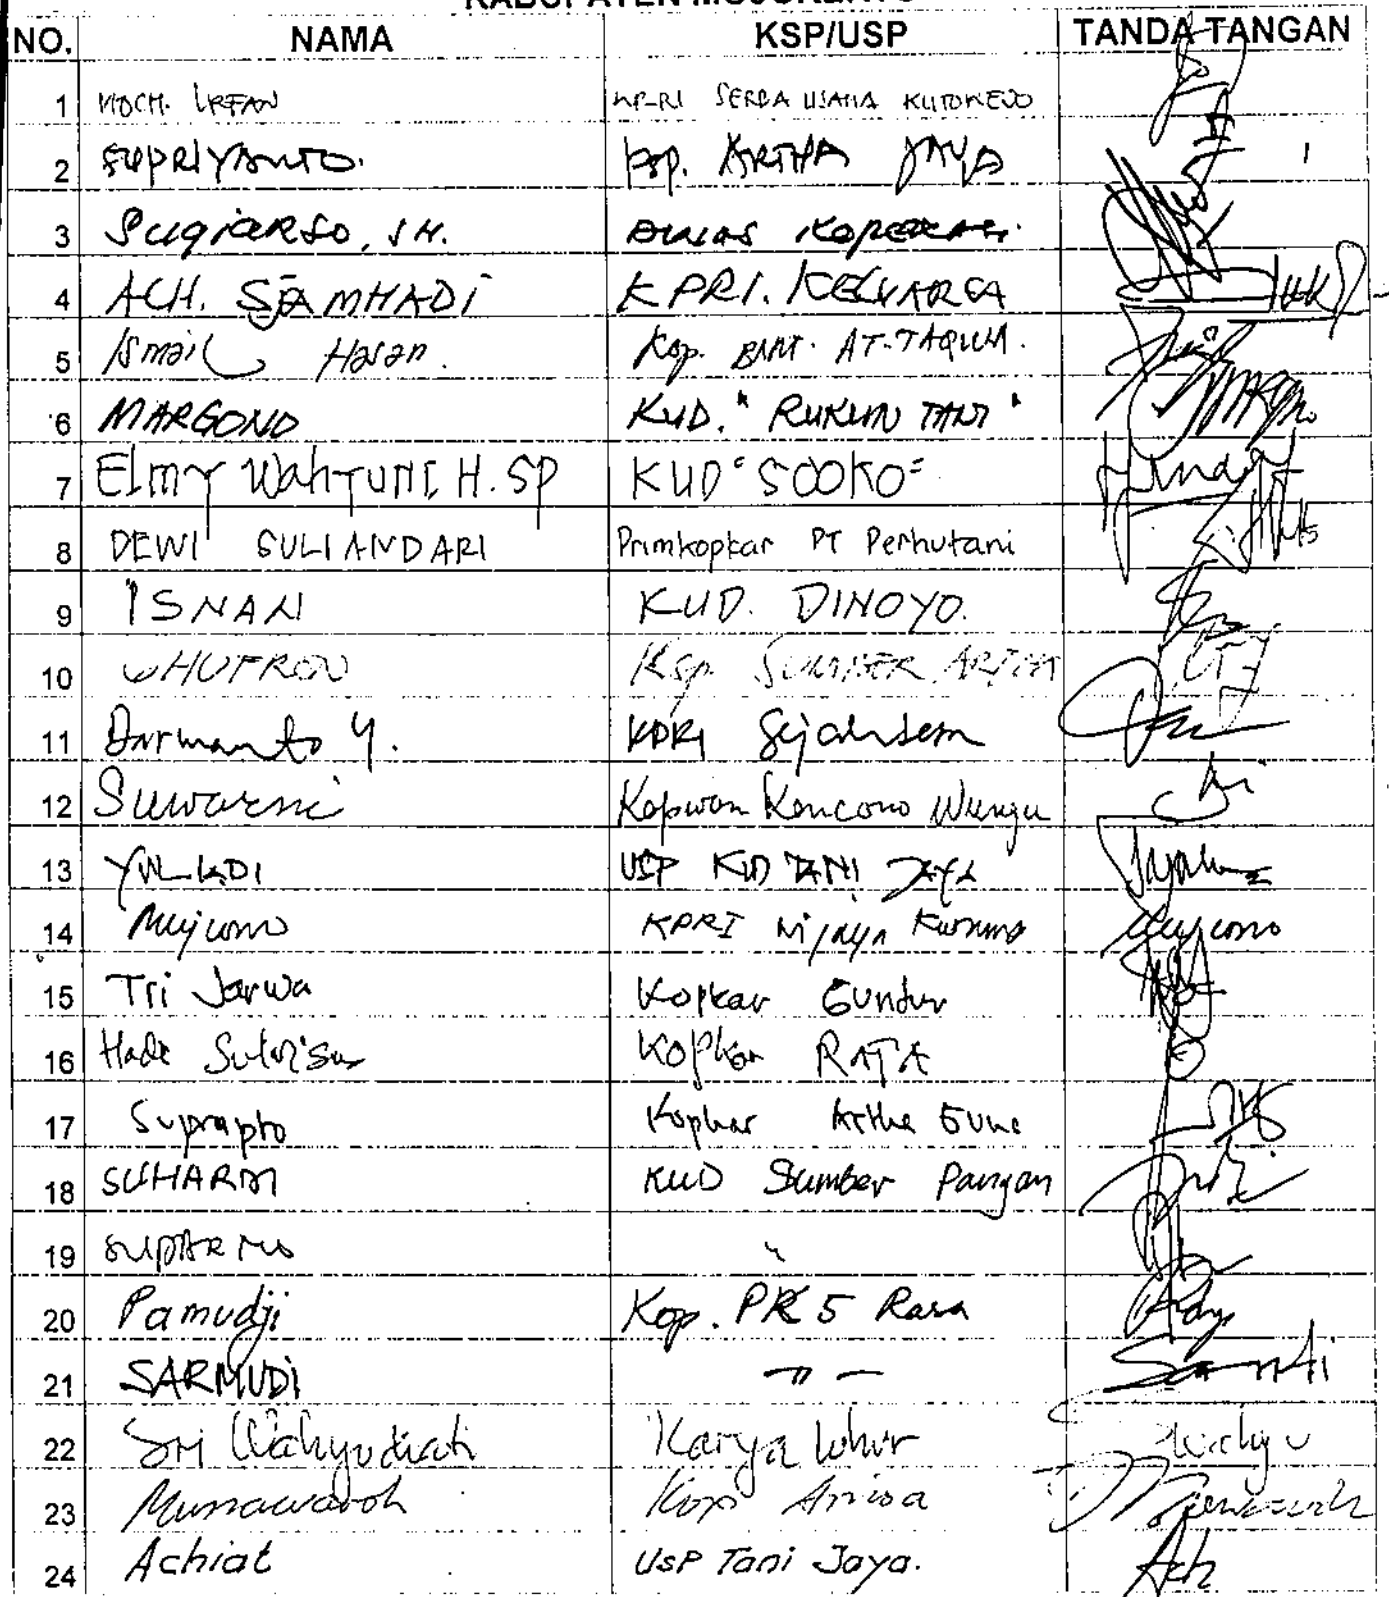 NO. NAMA KSP/USP TANDA TANGAN
1 MOCH. IRFAN KP-RI SERBA USAHA KUTOREJO
2 SUPRIYANTO. Ksp. ARTHA JAYA
3 Sugiarso, SH. DINAS KOPERASI.
4 ACH. SJAMHADI KPRI. KELUARGA
5 Ismail Hasan. Kop. BMT. AT-TAQWA.
6 MARGONO KUD. "RUKUN TANI"
7 Elmy Wahyuni, H. SP KUD "SOOKO"
8 DEWI SULIANDARI Primkopkar PT Perhutani
9 ISNAN KUD. DINOYO.
10 GHUFRON Ksp. SUMBER ARTHA
11 Darmanto Y. KPRI Sejahtera
12 Suwarni Kopwan Kencono Wungu
13 YULIADI USP KUD TANI JAYA
14 Mujiono KPRI Wijaya Kusuma Mujiono
15 Tri Jarwa Kopkar Guntur
16 Hadi Kopkar RATA
17 Suprapto Kopkar Artha Guna
18 SUHARDI KUD Sumber Pangan
19 SUPARNO "
20 Pamudji Kop. PRK 5 Rasa
21 SARMUDI - " -
22 Sri Wahyudiati Karya Luhur Wahyu
23 Munawaroh Kop Anisa
24 Achiat USP Tani Jaya. Ach